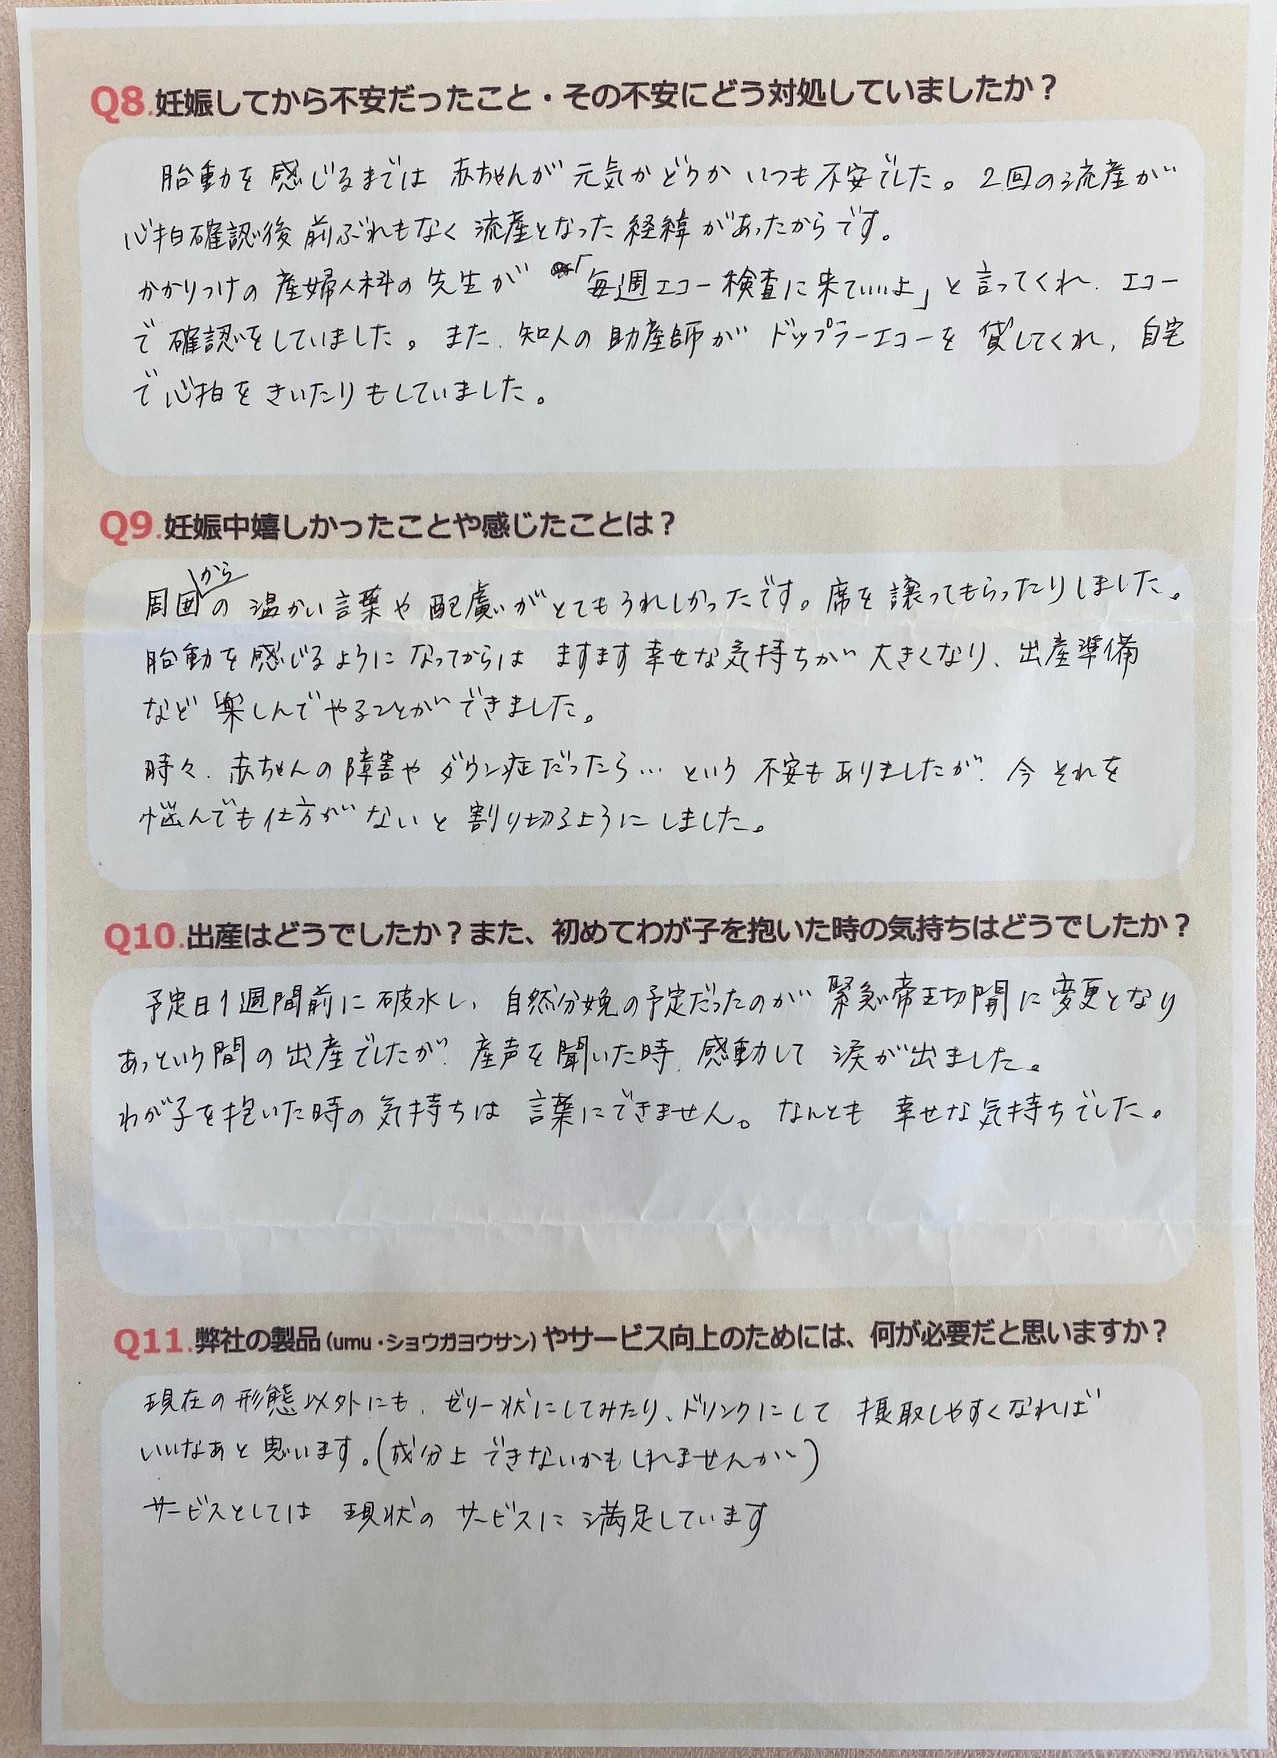 Q8.妊娠してから不安だったこと・その不安にどう対処していましたか？
胎動を感じるまでは赤ちゃんが元気かどうかいつも不安でした。2回の流産が
心拍確認後前ぶれもなく流産となった経緯があったからです。
かかりつけの産婦人科の先生が「毎週エコー検査に来ていいよ」と言ってくれ、エコー
で確認をしていました。また、知人の助産師がドップラーエコーを貸してくれ、自宅
で心拍をきいたりもしていました。
Q9.妊娠中嬉しかったことや感じたことは？
周囲からの温かい言葉や配慮がとてもうれしかったです。席を譲ってもらったりしました。
胎動を感じるようになってからは ますます幸せな気持ちが大きくなり、出産準備
など楽しんでやることができました。
時々、赤ちゃんの障害やダウン症だったら…という不安もありましたが、今それを
悩んでも仕方がないと割り切るようにしました。
Q10.出産はどうでしたか？また、初めてわが子を抱いた時の気持ちはどうでしたか？
予定日1週間前に破水し、自然分娩の予定だったのが緊急帝王切開に変更となり
あっという間の出産でしたが、産声を聞いた時、感動して涙が出ました。
わが子を抱いた時の気持ちは言葉にできません。なんとも幸せな気持ちでした。
Q11.弊社の製品(umu・ショウガヨウサン)やサービス向上のためには、何が必要だと思いますか？
現在の形態以外にも、ゼリー状にしてみたり、ドリンクにして摂取しやすくなれば
いいなあと思います。(成分上できないかもしれませんが)
サービスとしては現状のサービスに満足しています